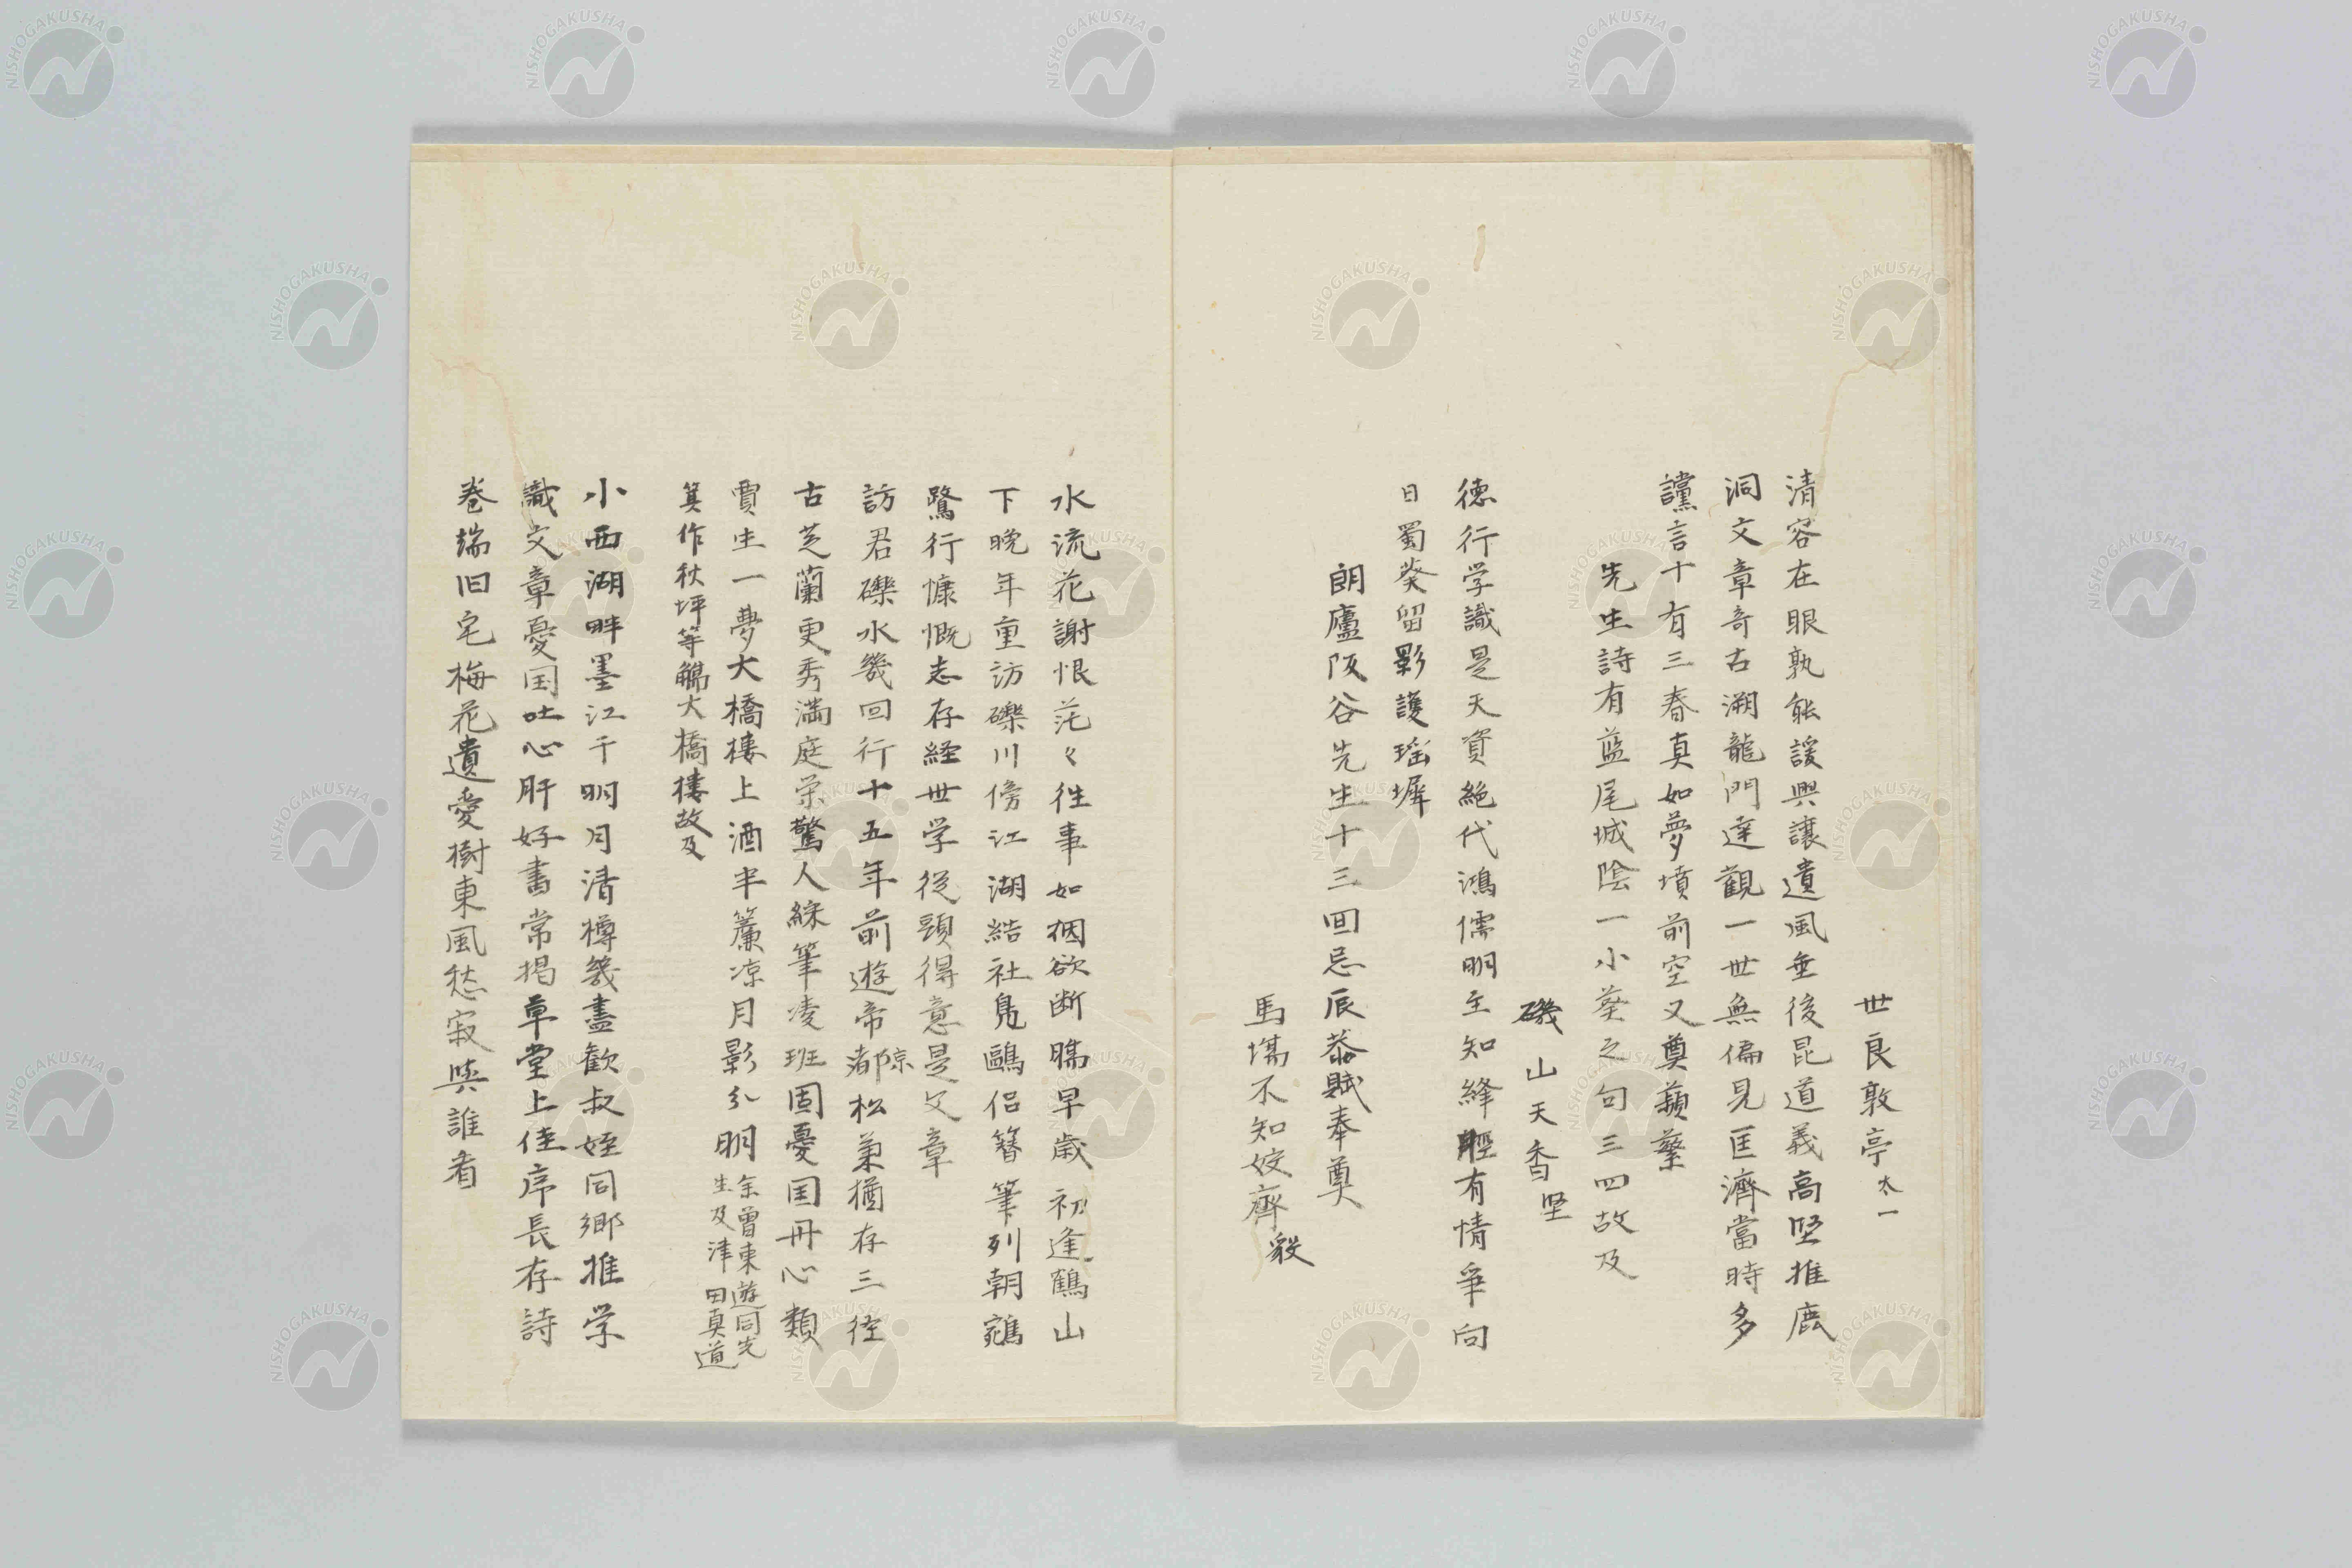 世良敦亭 太一
清容在眼孰能諼興讓遺風垂後昆道義高堅推鹿
洞文章奇古溯龍門達觀一世無偏見匡濟當時多
讜言十有三春真如夢墳前空又奠蘋蘩
先生詩有蓝尾城陰一小葵之句三四故及
磯山天香 坚
徳行学識是天資絶代鴻儒明主知絳有情争向
日蜀葵留影護瑶墀
朗廬阪谷先生十三回忌辰恭賦奉奠
馬場不知姣齋 毅
水流花謝恨茫々往事如烟欲断腸早歳初逢鶴山
下晩年重訪礫川傍江湖結社鳬鷗侣簪筆列朝鵷
鷺行慷慨志存経世学従頭得意是文章
訪君礫水幾回行十五年前遊帝都 京松菊猶存三径
古芝蘭更秀満庭栄驚人綵筆凌班固憂国丹心類
賈生一夢大橋樓上酒半簾凉月影分明 余曽東遊同先
生及津田真道
箕作秋坪等觴大橋樓故及
小西湖畔墨江干明月清樽幾盡歓叔姪同郷推学
識文章憂国吐心肝好書常掲草堂上佳序長存詩
巻端旧宅梅花遺愛樹東風愁寂與誰看